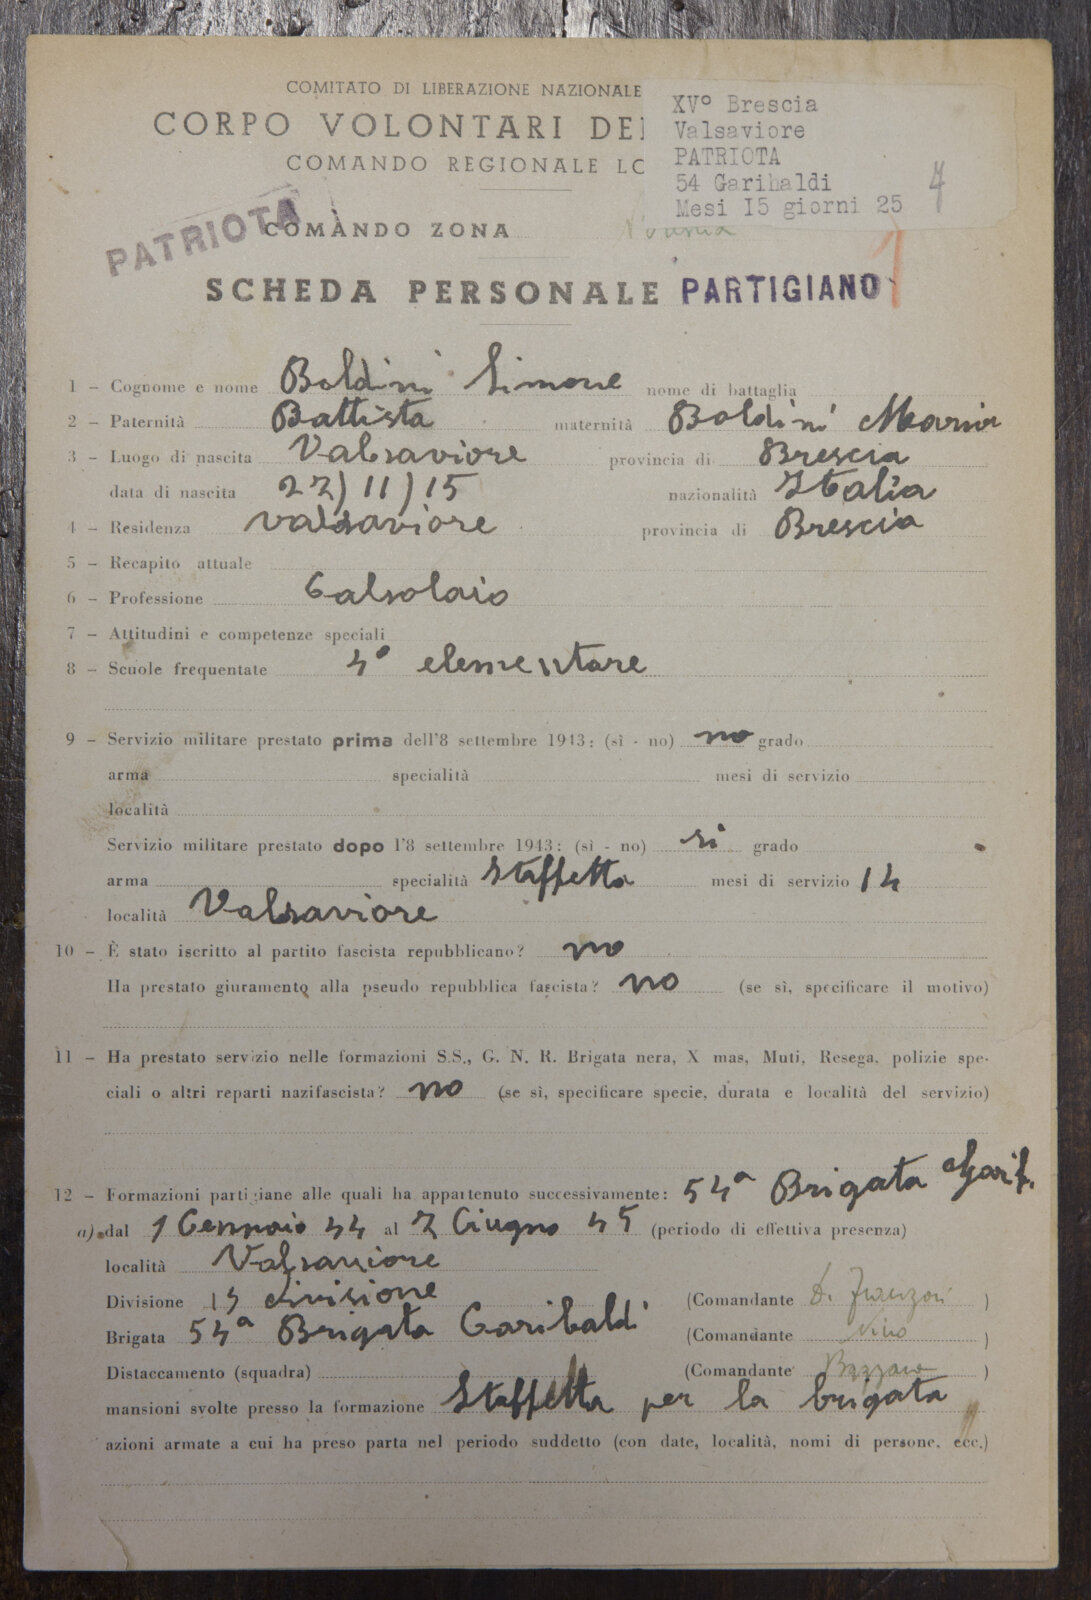 COMITATO DI LIBERAZIONE NAZIONALE
CORPO VOLONTARI DEL
COMANDO REGIONALE LO
XV° Brescia
Valsaviore
PATRIOTA
54 Garibaldi
Mesi I5 giorni 25
4
PATRIOTA
COMANDO ZONA
SCHEDA PERSONALE PARTIGIANO
1 - Cognome e nome Boldini Simone nome di battaglia
2 - Paternità Battista maternità Boldini Maria
3 - Luogo di nascita Valsaviore provincia di Brescia
data di nascita 27/11/15 nazionalità Italia
4 - Residenza Valsaviore provincia di Brescia
5 - Recapito attuale
6 - Professione Calsolaio
7 - Attitudini e competenze speciali
8 - Scuole frequentate 4° elementare
9 - Servizio militare prestato prima dell'8 settembre 1943: (sì - no) no grado
arma specialità mesi di servizio
località
Servizio militare prestato dopo l'8 settembre 1943: (sì - no) si grado
arma specialità Staffetta mesi di servizio 14
località Valsaviore
10 - È stato iscritto al partito fascista repubblicano? no
Ha prestato giuramento alla pseudo repubblica fascista? no (se sì, specificare il motivo)
11 - Ha prestato servizio nelle formazioni S.S., G. N. R. Brigata nera, X mas, Muti, Resega, polizie spe-
ciali o altri reparti nazifascista? no (se sì, specificare specie, durata e località del servizio)
12 - Formazioni partigiane alle quali ha appartenuto successivamente: 54ª Brigata Garib.
a) dal 1 Gennaio 44 al 7 Giugno 45 (periodo di effettiva presenza)
località Valsaviore
Divisione divisione (Comandante D. Franzoni )
Brigata 54ª Brigata Garibaldi (Comandante Nino )
Distaccamento (squadra) (Comandante )
mansioni svolte presso la formazione Staffetta per la brigata
azioni armate a cui ha preso parta nel periodo suddetto (con date, località, nomi di persone, ecc.)